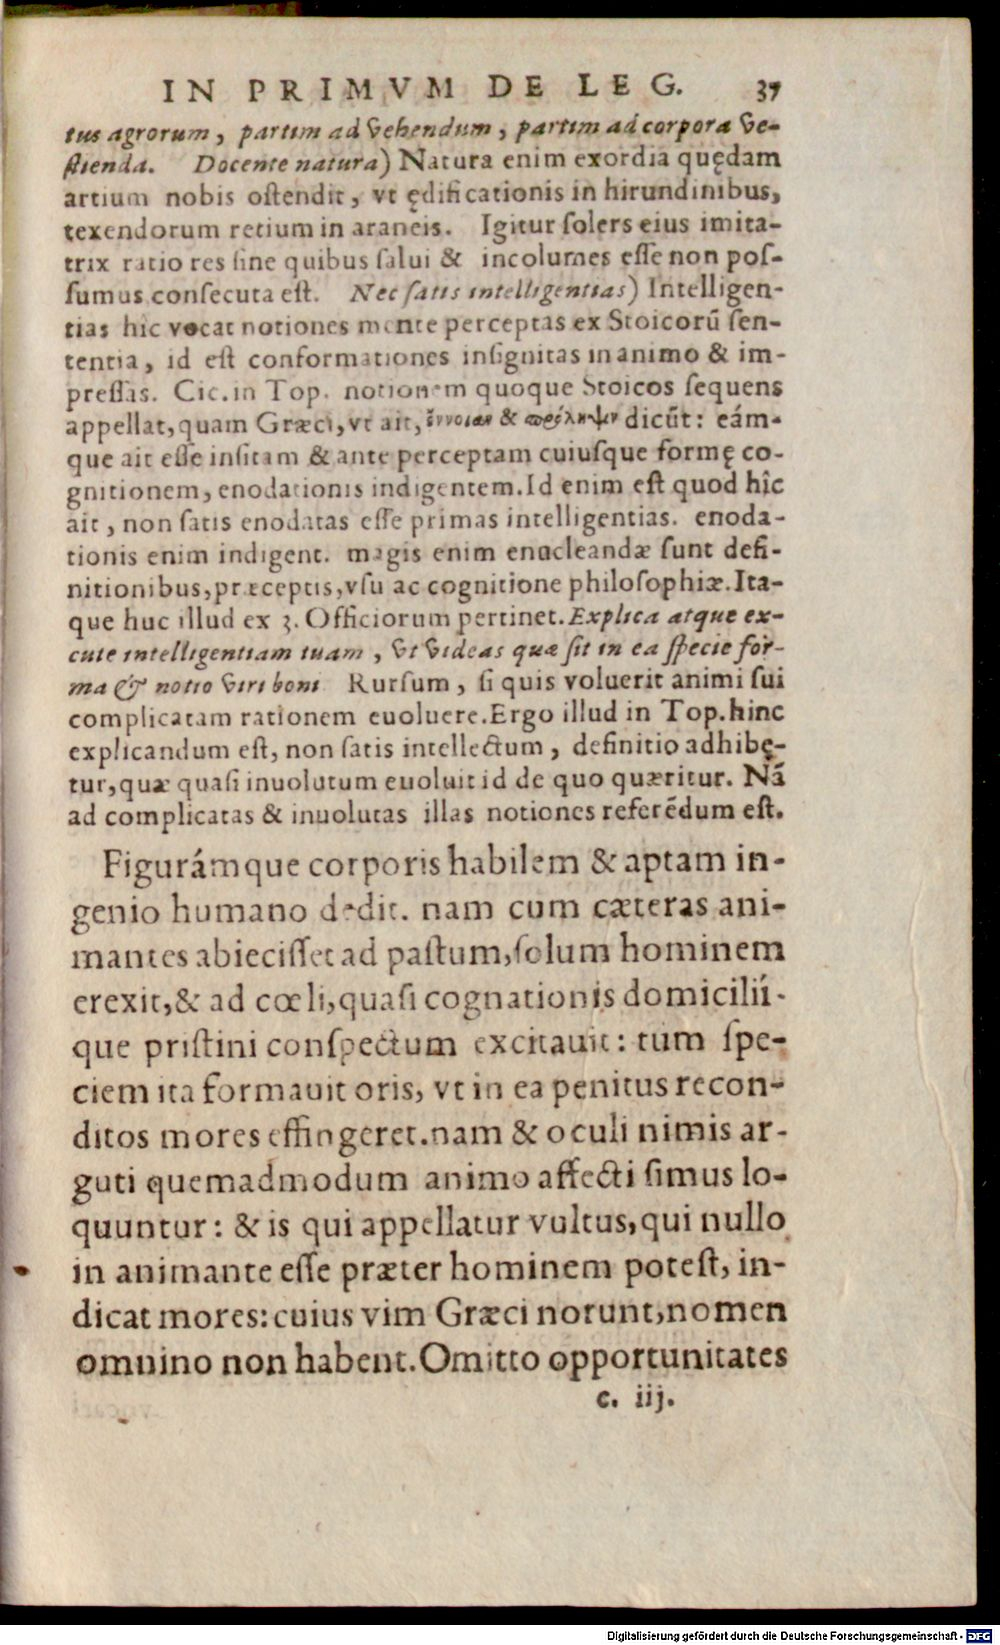 IN PRIMVM DE LEG. 37
tus agrorum, partim ad vehendum, partim ad corpora ve-
ſtienda. Docente natura) Natura enim exordia quędam
artium nobis oſtendit, vt ędificationis in hirundinibus,
texendorum retium in araneis. Igitur ſolers eius imita-
trix ratio res ſine quibus ſalui & incolumes eſſe non poſ-
ſumus conſecuta eſt. Nec ſatis intelligentias) Intelligen-
tias hic vocat notiones mente perceptas ex Stoicorū ſen-
tentia, id eſt conformationes inſignitas in animo & im-
preſſas. Cic. in Top. notionem quoque Stoicos ſequens
appellat, quam Græci, vt ait, ἔννοιαν & πρόληψιν dicūt: eám-
que ait eſſe inſitam & ante perceptam cuiuſque formę co-
gnitionem, enodationis indigentem. Id enim eſt quod hîc
ait, non ſatis enodatas eſſe primas intelligentias. enoda-
tionis enim indigent. magis enim enucleandæ ſunt defi-
nitionibus, præceptis, vſu ac cognitione philoſophiæ. Ita-
que huc illud ex 3. Officiorum pertinet. Explica atque ex-
cute intelligentiam tuam, vt videas quæ ſit in ea ſpecie for-
ma & notio viri boni Rurſum, ſi quis voluerit animi ſui
complicatam rationem euoluere. Ergo illud in Top. hinc
explicandum eſt, non ſatis intellectum, definitio adhibę-
tur, quæ quaſi inuolutum euoluit id de quo quæritur. Nā
ad complicatas & inuolutas illas notiones referēdum eſt.
Figurámque corporis habilem & aptam in-
genio humano dedit. nam cum cæteras ani-
mantes abieciſſet ad paſtum, ſolum hominem
erexit, & ad cœli, quaſi cognationis domicilií-
que priſtini conſpectum excitauit: tum ſpe-
ciem ita formauit oris, vt in ea penitus recon-
ditos mores effingeret. nam & oculi nimis ar-
guti quemadmodum animo affecti ſimus lo-
quuntur: & is qui appellatur vultus, qui nullo
in animante eſſe præter hominem poteſt, in-
dicat mores: cuius vim Græci norunt, nomen
omnino non habent. Omitto opportunitates
c. iij.
Digitalisierung gefördert durch die Deutsche Forschungsgemeinschaft - DFG